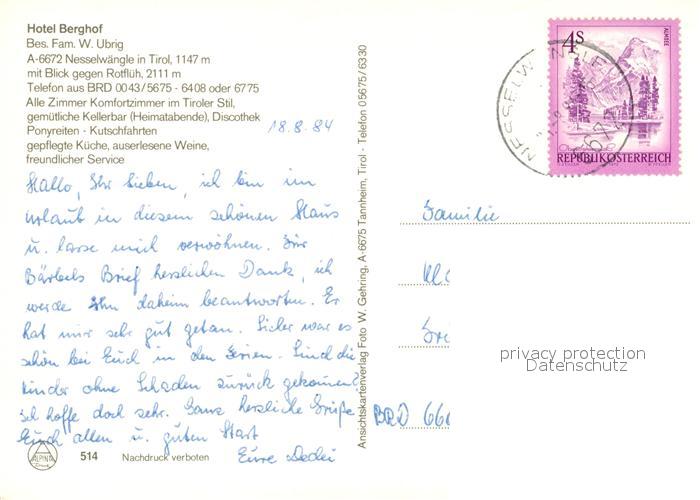 Hotel Berghof
Bes. Fam. W. Ubrig
A-6672 Nesselwängle in Tirol, 1147 m
mit Blick gegen Rotflüh, 2111 m
Telefon aus BRD 0043/5675 - 6408 oder 6775
Alle Zimmer Komfortzimmer im Tiroler Stil,
gemütliche Kellerbar (Heimatabende), Discothek
Ponyreiten - Kutschfahrten
gepflegte Küche, auserlesene Weine,
freundlicher Service
18.8.84
Hallo, Ihr Lieben, ich bin im
Urlaub in diesem schönen Haus
u. lasse mich verwöhnen. Für
Bärbels Brief herzlichen Dank, ich
werde ihn daheim beantworten. Er
hat mir sehr gut getan. Sicher war es
schön bei Euch in den Ferien. Sind die
Kinder ohne Schaden zurück gekommen?
Ich hoffe doch sehr. Ganz herzliche Grüße
Euch allen u. guten Start
Eure Dedei
ALPINA
Druck
514 Nachdruck verboten
Ansichtskartenverlag Foto W. Gehring, A-6675 Tannheim, Tirol · Telefon 05675/6330
4s
ALMSEE
REPUBLIK ÖSTERREICH
NESSELWÄNGLE
6672
Familie
BRD 666
privacy protection
Datenschutz